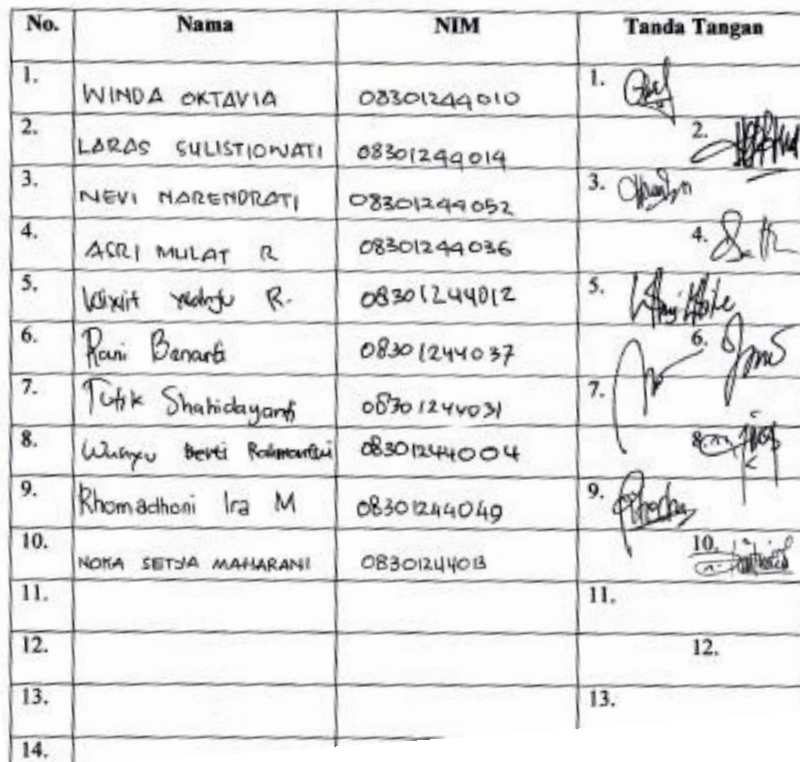 No. Nama NIM Tanda Tangan
1. WINDA OKTAVIA 08301244010 1.
2. LARAS SULISTIOWATI 08301244014 2.
3. NEVI NARENDRATI 08301244052 3.
4. ASRI MULAT R 08301244036 4.
5. R. 08301244012 5.
6. Rani 08301244037 6.
7. Shahidayanti 08301244031 7.
8. 08301244004 8.
9. Rhomadhoni Ira M 08301244049 9.
10. NOKA SETYA MAHARANI 08301244013 10.
11. 11.
12. 12.
13. 13.
14.